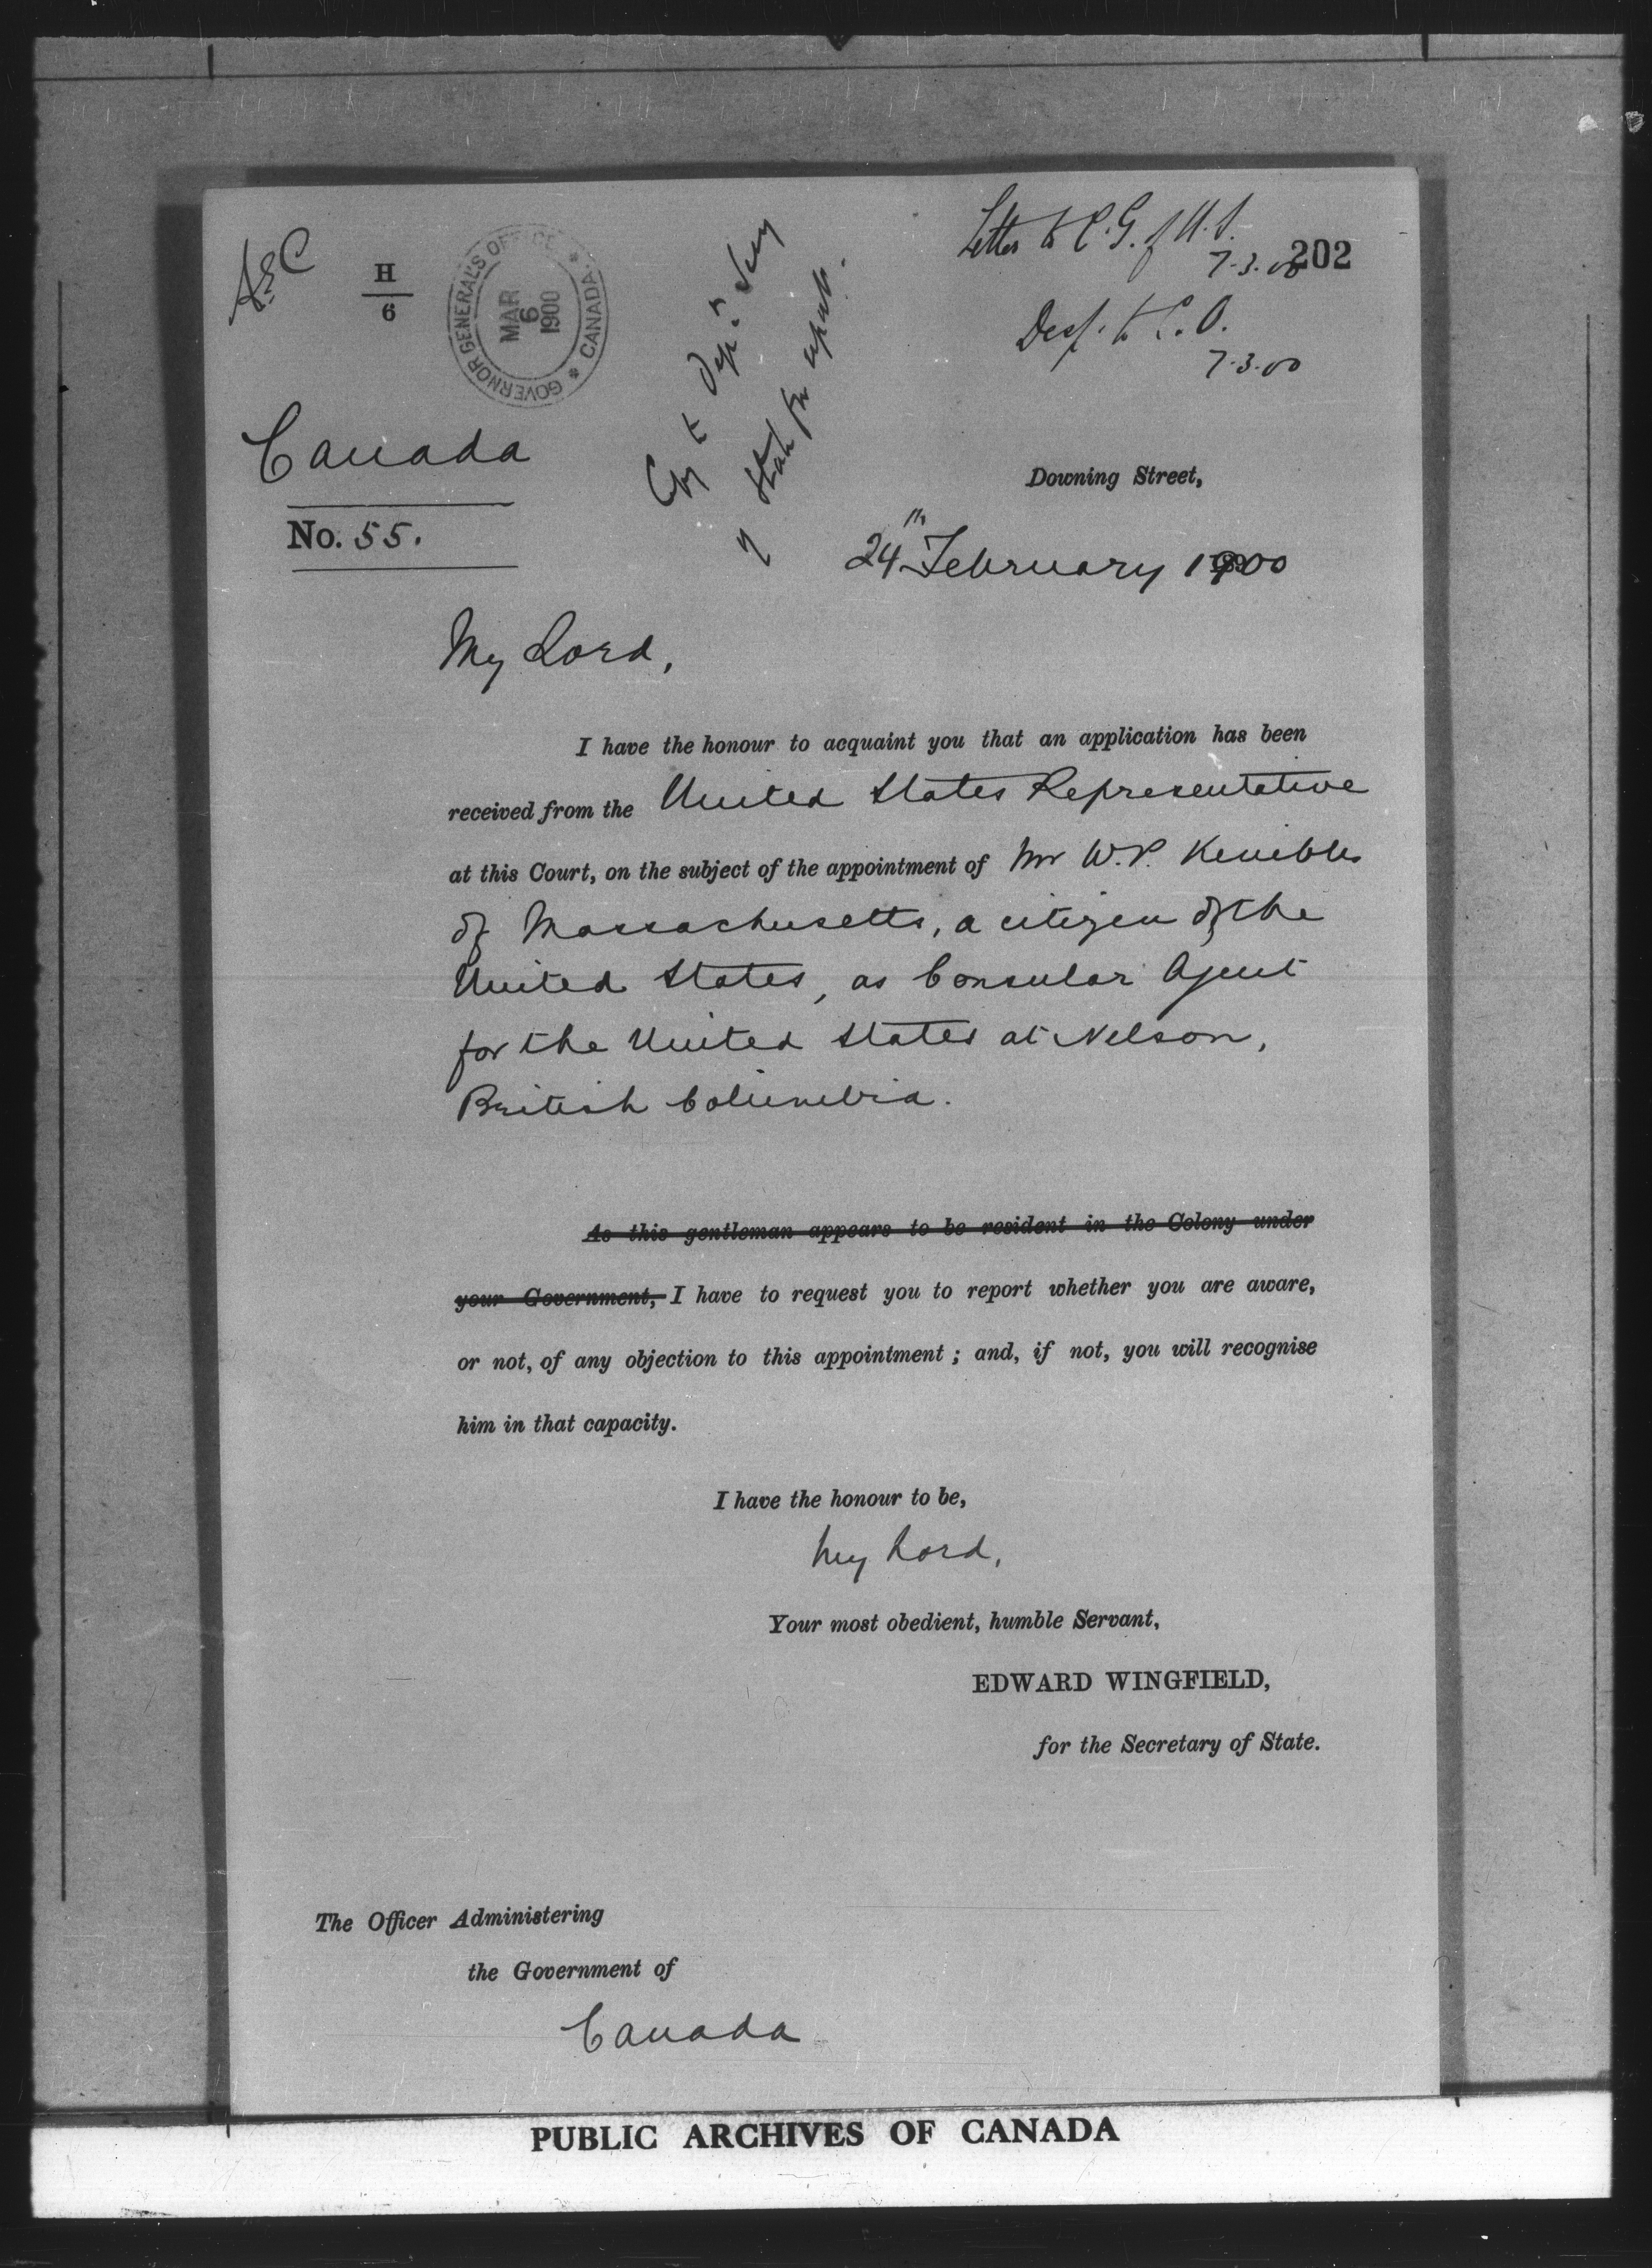 Letter to C.G. of U.S.
7.3.00
202
H
6
GOVERNOR GENERAL'S OFFICE
MAR
6
1900
CANADA
Desp. to C.O.
7.3.00
Copy to Dep.
of State for report.
Canada
No. 55.
Downing Street,
24th February 1900
My Lord,
I have the honour to acquaint you that an application has been
received from the United States Representative
at this Court, on the subject of the appointment of Mr W.P. Kenibles
of Massachusetts, a citizen of the
United States, as Consular Agent
for the United States at Nelson,
British Columbia.
As this gentleman appears to be resident in the Colony under
your Government, I have to request you to report whether you are aware,
or not, of any objection to this appointment; and, if not, you will recognise
him in that capacity.
I have the honour to be,
My Lord,
Your most obedient, humble Servant,
EDWARD WINGFIELD,
for the Secretary of State.
The Officer Administering
the Government of
Canada
PUBLIC ARCHIVES OF CANADA